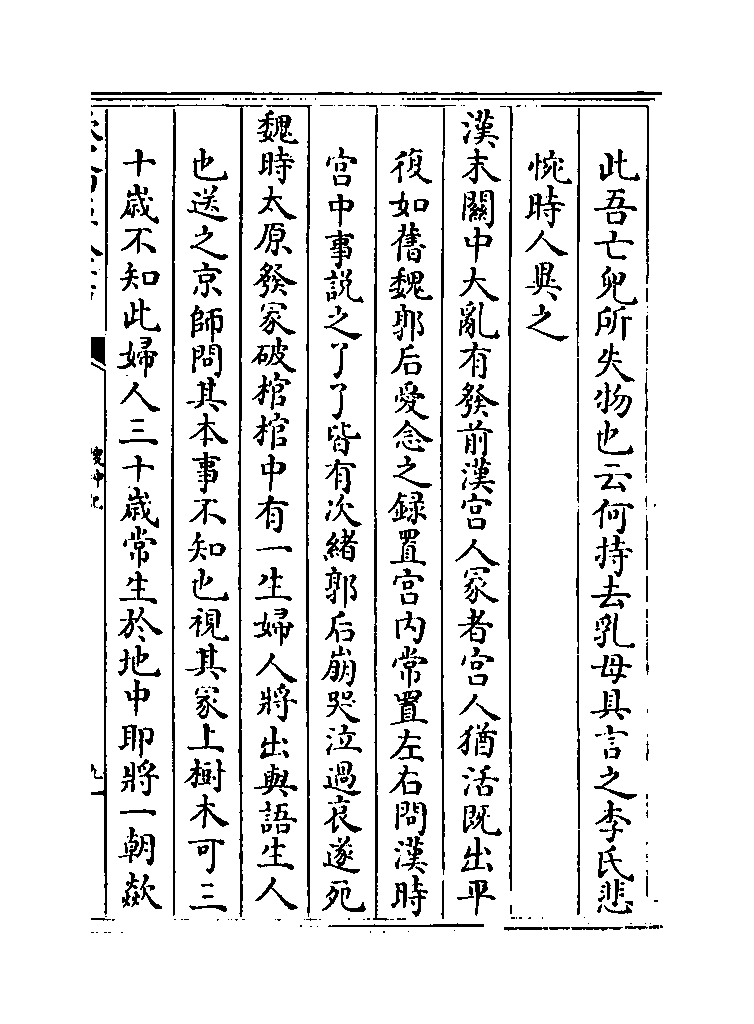 此吾亡兒所失物也云何持去乳母具言之李氏悲
惋時人異之
漢末關中大亂有發前漢宫人冢者宫人猶活既出平
復如舊魏郭后愛念之録置宫内常置左右問漢時
宫中事説之了了皆有次緒郭后崩哭泣過哀遂死
魏時太原發冢破棺棺中有一生婦人將出與語生人
也送之京師問其本事不知也視其冢上樹木可三
十歳不知此婦人三十歳常生於地中耶將一朝歘
搜神記
九